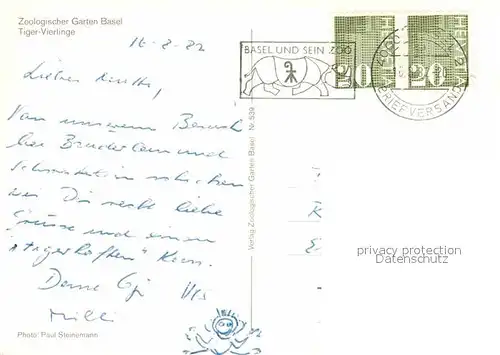 Zoologischer Garten Basel
Tiger-Vierlinge
16-8-82
Lieber
Von unserem Besuch
bei Bruderlein und
Schwesterlein schicken
wir Dir recht liebe
Grüsse und einen
"tigerhaften" Kuss.
Deine
Photo: Paul Steinemann
Verlag Zoologischer Garten Basel Nr. 539
BASEL UND SEIN ZOO
BRIEFVERSAND
HELVETIA
20
20
R
E
privacy protection
Datenschutz